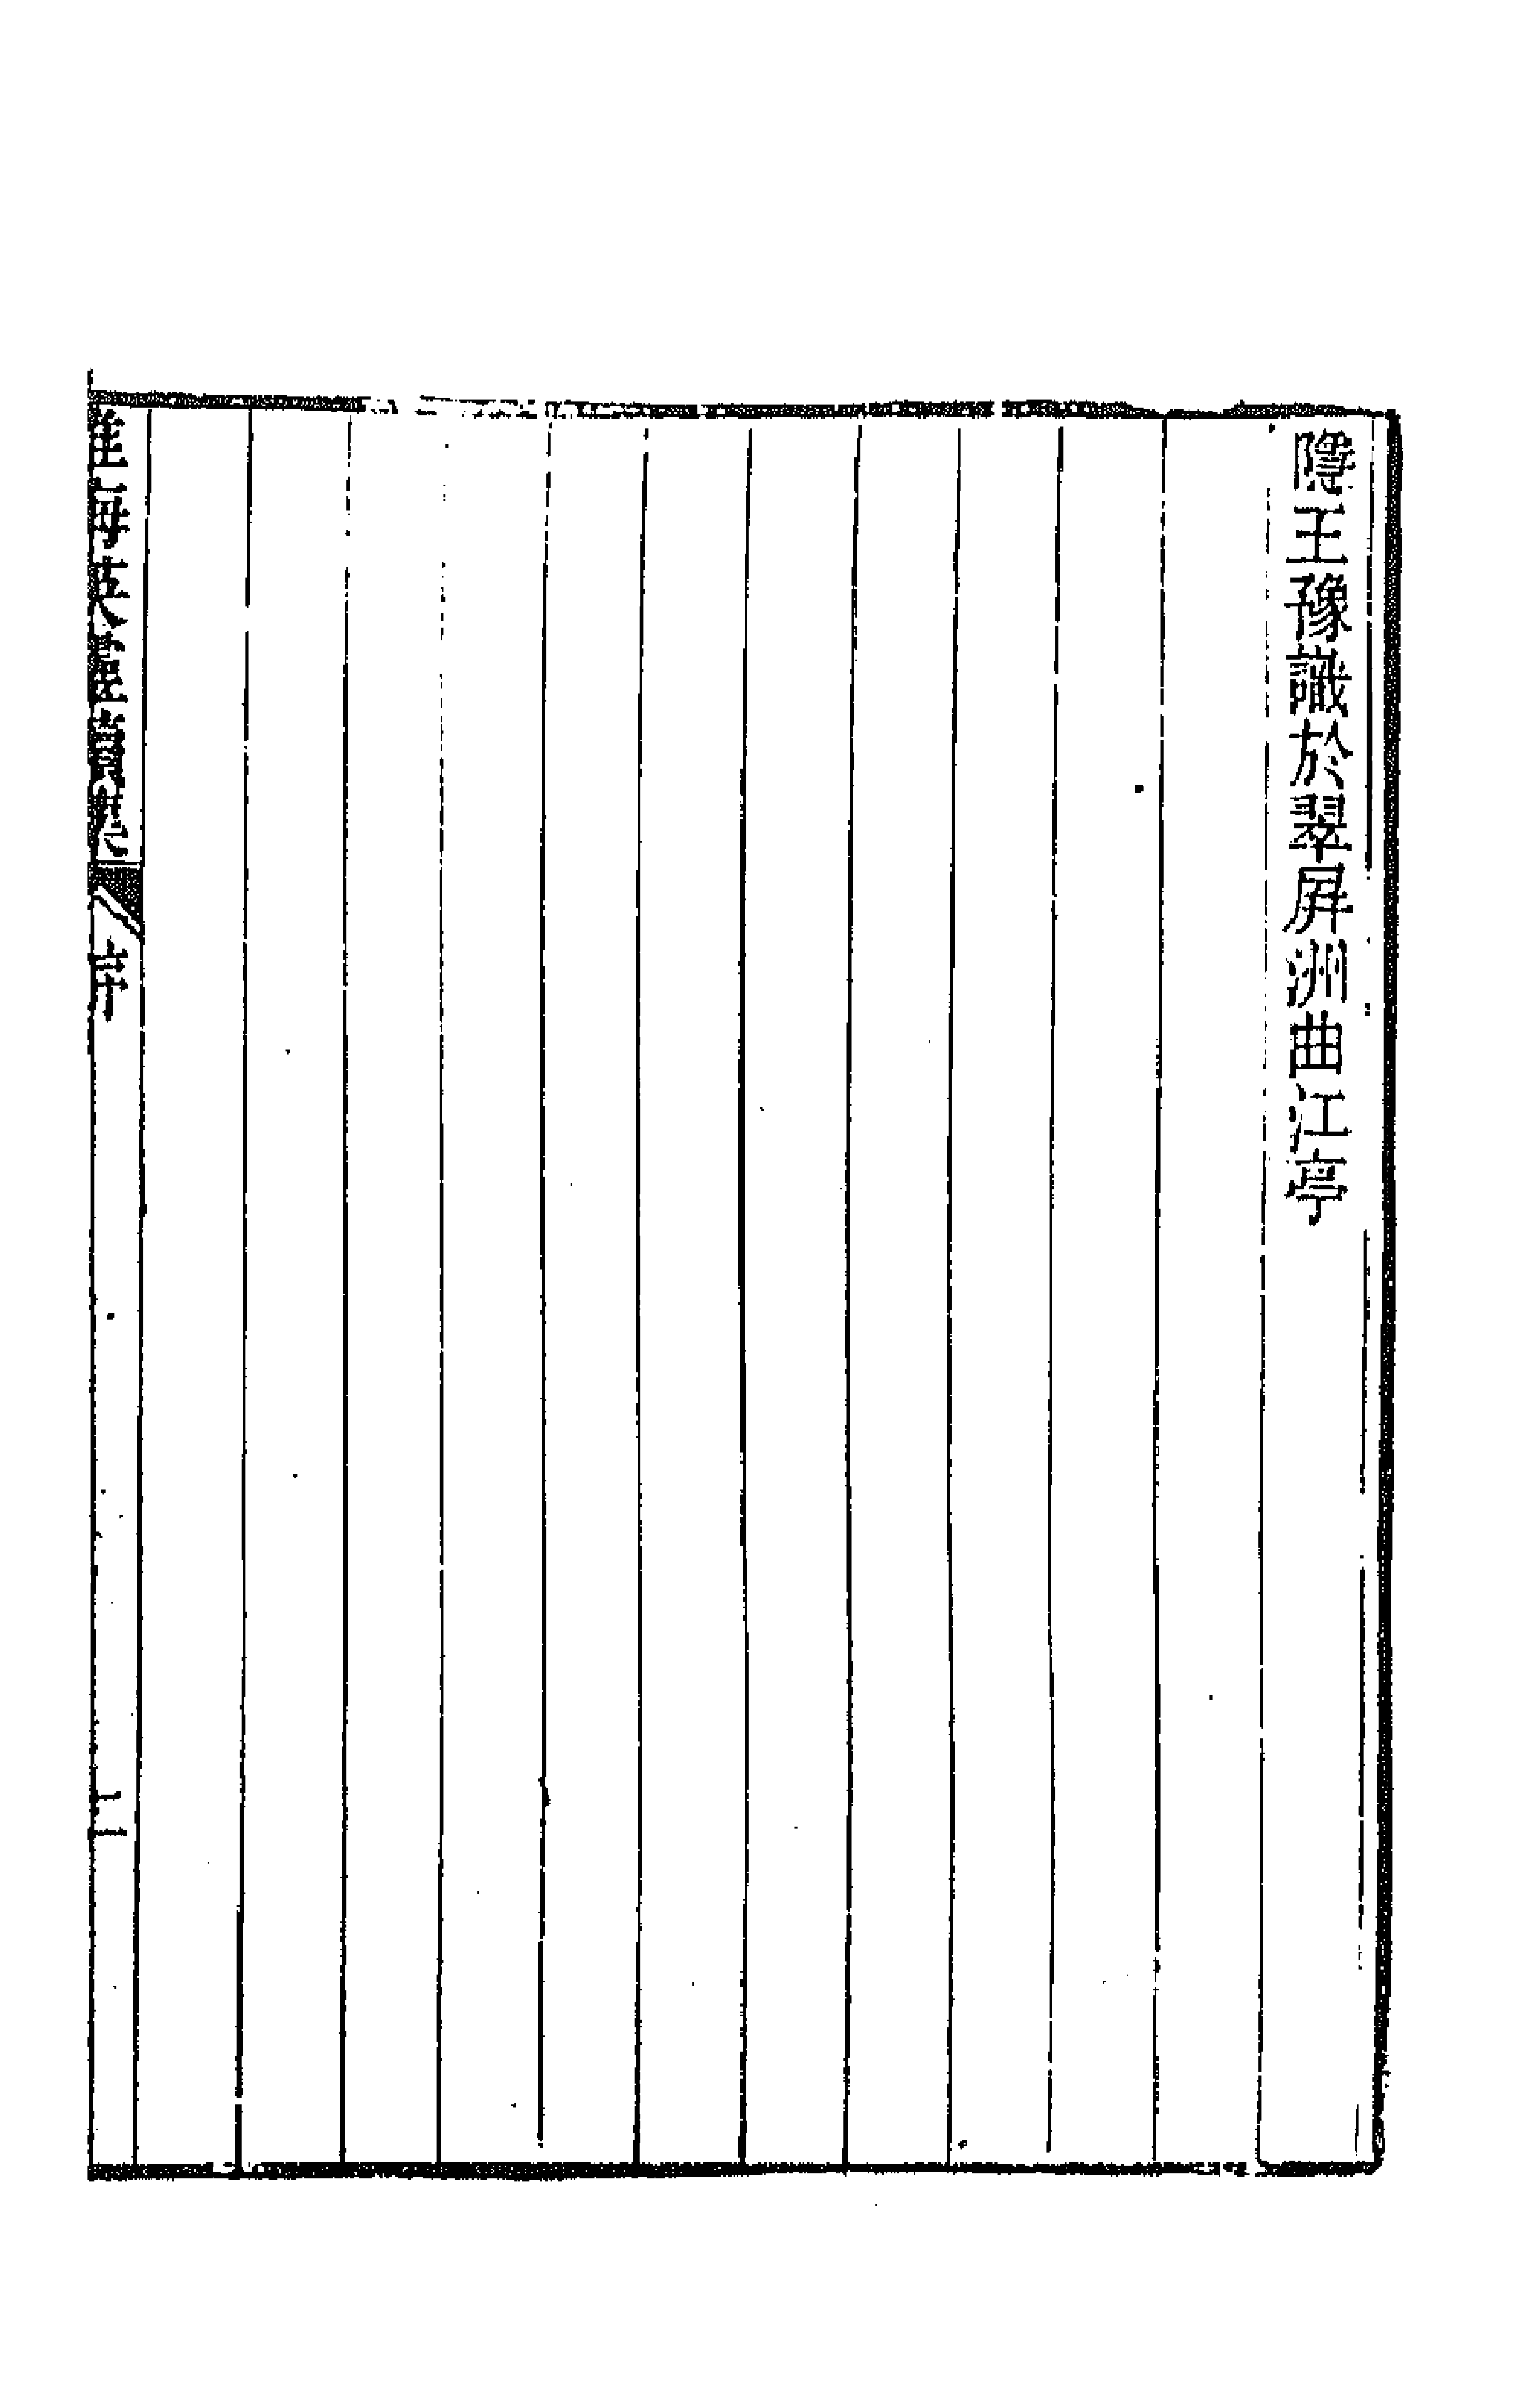 隱王豫識於翠屏洲曲江亭
淮海英靈續集
序